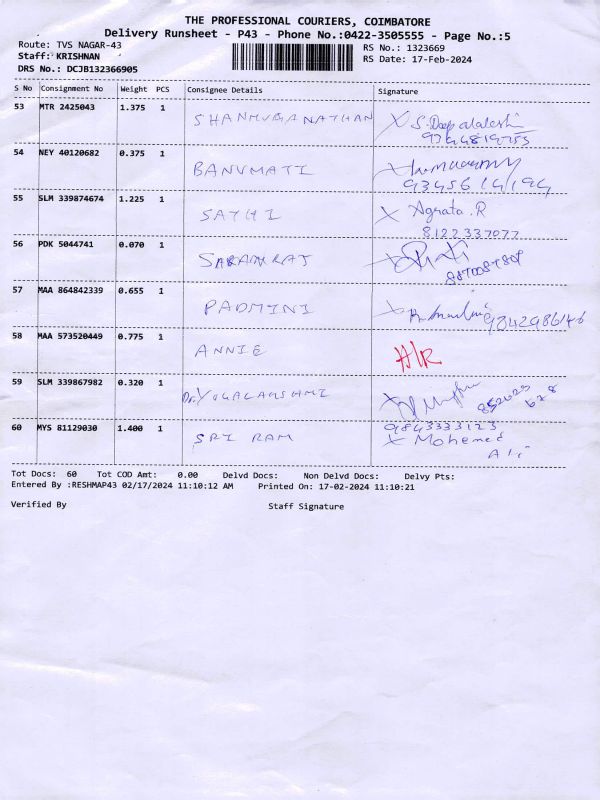 THE PROFESSIONAL COURIERS, COIMBATORE
Delivery Runsheet - P43 - Phone No.:0422-3505555 - Page No.:5
Route: TVS NAGAR-43 RS No.: 1323669
Staff: KRISHNAN RS Date: 17-Feb-2024
DRS No.: DCJB132366905
S No Consignment No Weight PCS Consignee Details Signature
53 MTR 2425043 1.375 1 SHANMUGANATHAN X S. Deepalakshi
9794819753
54 NEY 40120682 0.375 1 BANUMATI
9345614194
55 SLM 339874674 1.225 1 SATHI X Agnata.R
8122337077
56 PDK 5044741 0.070 1 SARANRAJ
57 MAA 864842339 0.655 1 PADMINI 9842986146
58 MAA 573520449 0.775 1 ANNIE H/R
59 SLM 339867982 0.320 1 Dr. YOGALAKSHMI
9843333123
60 MYS 81129030 1.400 1 SRI RAM X Mohemed
Ali
Tot Docs: 60 Tot COD Amt: 0.00 Delvd Docs: Non Delvd Docs: Delvy Pts:
Entered By :RESHMAP43 02/17/2024 11:10:12 AM Printed On: 17-02-2024 11:10:21
Verified By Staff Signature